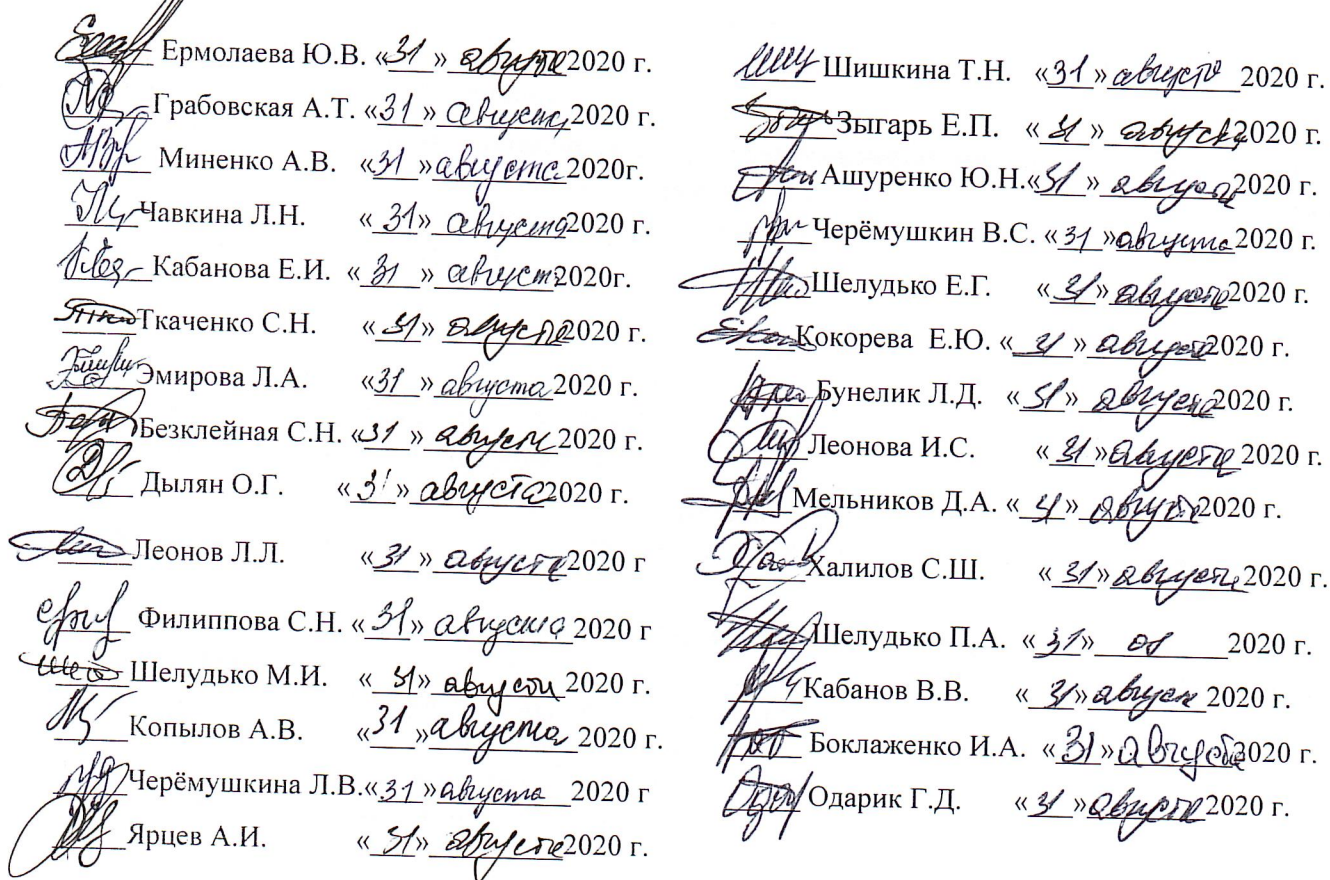 Ермолаева Ю.В. «31» августа 2020 г.
Грабовская А.Т. «31» августа 2020 г.
Миненко А.В. «31» августа 2020г.
Чавкина Л.Н. «31» августа 2020 г.
Кабанова Е.И. «31» август 2020г.
Ткаченко С.Н. «31» августа 2020 г.
Эмирова Л.А. «31» августа 2020 г.
Безклейная С.Н. «31» август 2020 г.
Дылян О.Г. «31» августа 2020 г.
Леонов Л.Л. «31» августа 2020 г.
Филиппова С.Н. «31» августа 2020 г
Шелудько М.И. «31» августа 2020 г.
Копылов А.В. «31» августа 2020 г.
Черёмушкина Л.В. «31» августа 2020 г
Ярцев А.И. «31» августа 2020 г.
Шишкина Т.Н. «31» августа 2020 г.
Зыгарь Е.П. «31» августа 2020 г.
Ашуренко Ю.Н. «31» августа 2020 г.
Черёмушкин В.С. «31» августа 2020 г.
Шелудько Е.Г. «31» августа 2020 г.
Кокорева Е.Ю. «31» августа 2020 г.
Бунелик Л.Д. «31» августа 2020 г.
Леонова И.С. «31» августа 2020 г.
Мельников Д.А. «31» августа 2020 г.
Халилов С.Ш. «31» августа 2020 г.
Шелудько П.А. «31» 08 2020 г.
Кабанов В.В. «31» август 2020 г.
Боклаженко И.А. «31» августа 2020 г.
Одарик Г.Д. «31» августа 2020 г.